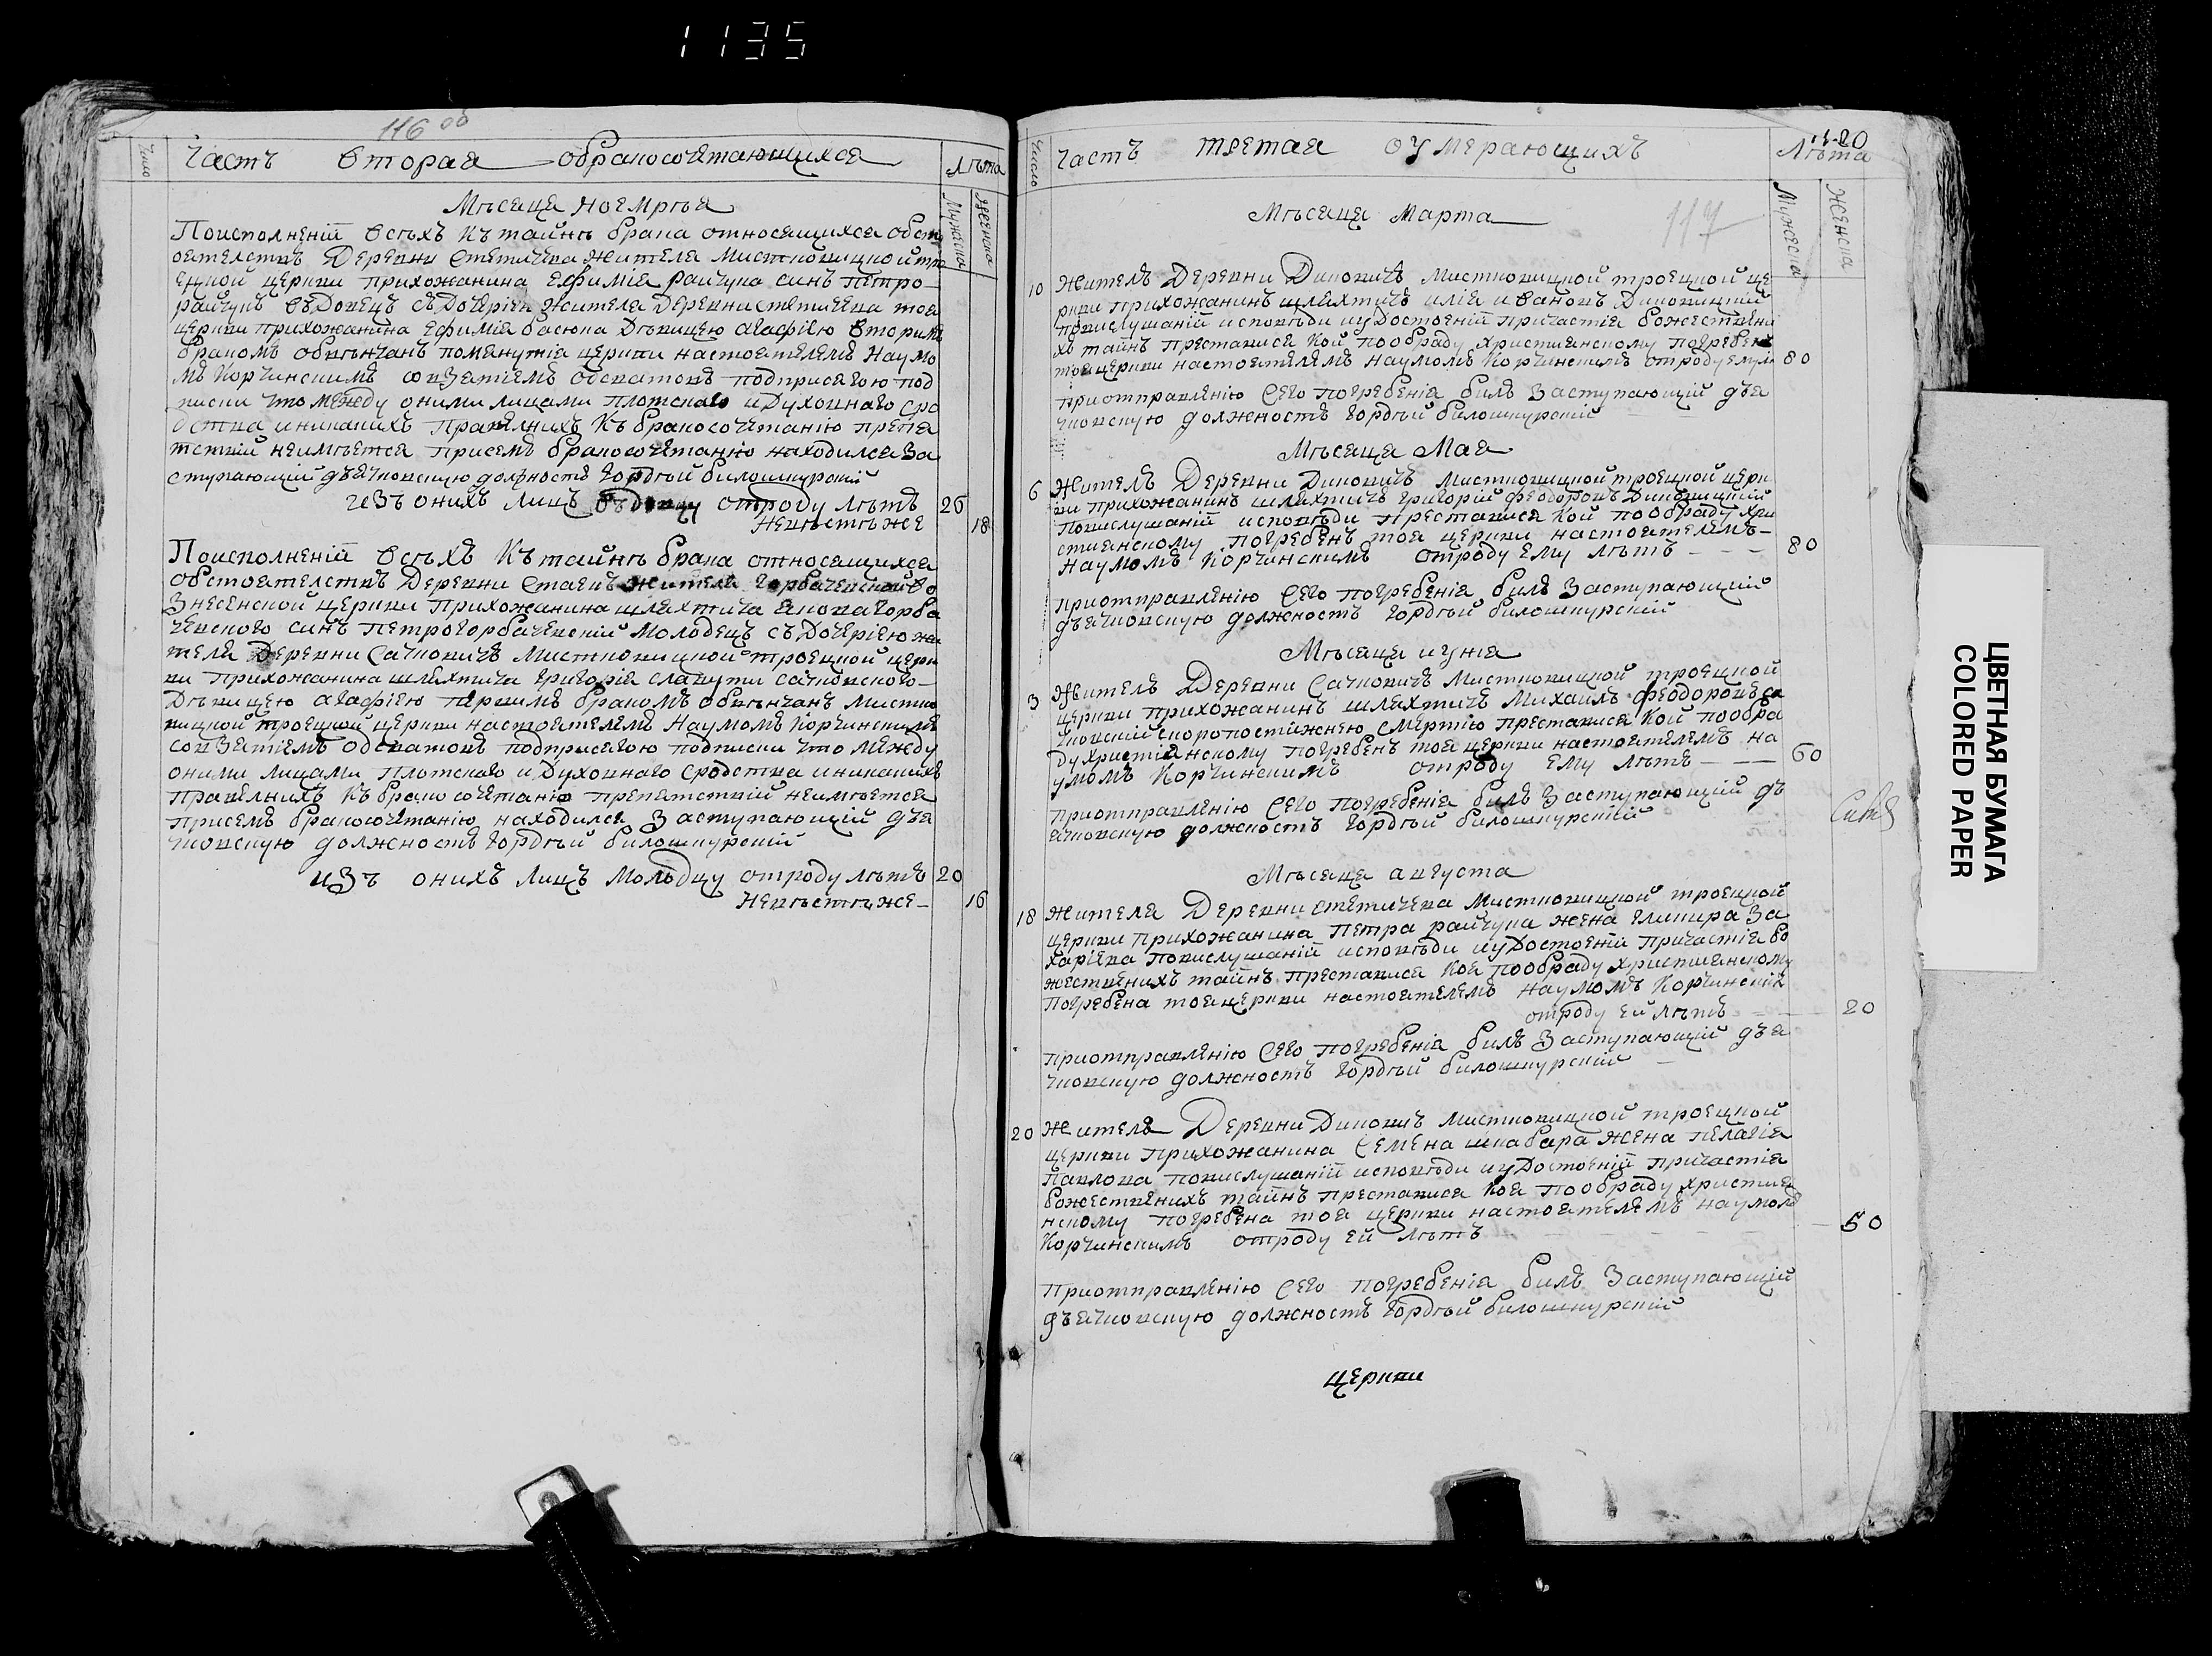 1135
116 об
Число
Часть вторая обракосочетающихся
Лѣта
Мужеска
Женска
Мѣсяца ноемрѣя
Поисполненій всѣхъ къ тайнѣ брака относящихся обст
оятелствъ деревни Стетичева жителя Мистковицкой тро
ецкой церкви прихожанина Ефимія Райчука синъ Петро
Райчукъ въдовецъ съ дочерією жителя деревни Стетичева тоя
церкви прихожанина Ефимія Басюка дѣвицею Агафією вторимъ
бракомъ обвѣнчанъ помянутія церкви настоятелемъ Наумо
мъ Корчинскимъ со взятіемъ обсватовъ подприсягою под
писки что между оними лицами плотскаго и духовнаго сро
дства иникакихъ правилнихъ къ бракосочетанию препя
тствий неимѣется присемъ бракосочетанію находился за
ступающій дъячковскую должность Гордѣй Билошкурскій
изъ онихъ лицъ въдовцу отроду лѣтъ 26
невѣстѣ же 18
Поисполненій всѣхъ къ тайнѣ брака относящихся
обстоятелствъ деревни Ставкъ жителя Горбачевской Во
знесенской церкви прихожанина шляхтича Якова Горба
чевского синъ Петро Горбачевскій молодецъ съ дочерією жи
теля деревни Сачковичъ Мистковицкой троецкой церк
ви прихожанина шляхтича Григорія Славути Сачковского
дѣвицею Агафією первимъ бракомъ обвѣнчанъ Мистко
вицкой троецкой церкви настоятелемъ Наумомъ Корчинскимъ
со взятіемъ обсватовъ подприсягою подписки что между
оними лицами плотскаго и духовнаго сродства иникакихъ
правилнихъ къ бракосочетанію препятствий неимѣется
присемъ бракосочетанію находился заступающій дъя
чковскую должность Гордѣй Билошкурскій
изъ онихъ лицъ молодцу отроду лѣтъ 20
невѣстѣ же 16
Число
Часть третая о умерающихъ
Лѣта
Мужеска
Женска
Мѣсяца марта
117
10 Житель деревни Диковичъ Мистковицкой троецкой це
ркви прихожанинъ шляхтичъ Илія Ивановъ Диковицкій
повислушаній исповѣди иудостоеній причастія божествени
хъ тайнъ преставися кой пообряду христианскому погребенъ
тоя церкви настоятелемъ Наумомъ Корчинскимъ отроду ему 80
приотправленію сего погребенія билъ заступающій дъя
чковскую должность Гордѣй Билошкурскій
Мѣсяца мая
6 Житель деревни Диковичъ Мистковицкой троецкой церк
ви прихожанинъ шляхтичъ Григорій Феодоровъ Диковицкій
повислушаній исповѣди преставися кой пообряду хри
стианскому погребенъ тоя церкви настоятелемъ
Наумомъ Корчинскимъ отроду ему лѣтъ 80
приотправленію сего погребенія билъ заступающій
дъячковскую должность Гордѣй Билошкурскій
Мѣсяца иуния
3 Житель деревни Сачковичъ Мистковицкой троецкой
церкви прихожанинъ шляхтичъ Михаилъ Феодоровъ Са
чковский скоропостижнею смертію преставися кой пообря
ду христіянскому погребенъ тоя церкви настоятелемъ На
умомъ Корчинскимъ отроду ему лѣтъ 60
приотправленію сего погребенія билъ заступающій дъ
ячковскую должность Гордѣй Билошкурскій
Мѣсяца августа
18 Жителя деревни Стетичева Мистковицкой троецкой
церкви прихожанина Петра Райчука жена Гликира За
харіева повислушаній исповѣди иудостоеній причастія бо
жественихъ тайнъ преставися коя пообряду христианскому
погребена тоя церкви настоятелемъ Наумомъ Корчинскім
отроду ей лѣтъ 20
приотправленію сего погребенія билъ заступающій дъя
чковскую должность Гордѣй Билошкурскій
20 Жителя деревни Диковичъ Мистковицкой троецкой
церкви прихожанина Семена Шкабара жена Пелагія
Павлова повислушаній исповѣди иудостоеній причастія
божественихъ тайнъ преставися коя пообряду христия
нскому погребена тоя церкви настоятелемъ Наумомъ
Корчинскимъ отроду ей лѣтъ 50
Приотправленію сего погребенія билъ заступающій
дъячковскую должность Гордѣй Билошкурскій
церкви
ЦВЕТНАЯ БУМАГА
COLORED PAPER